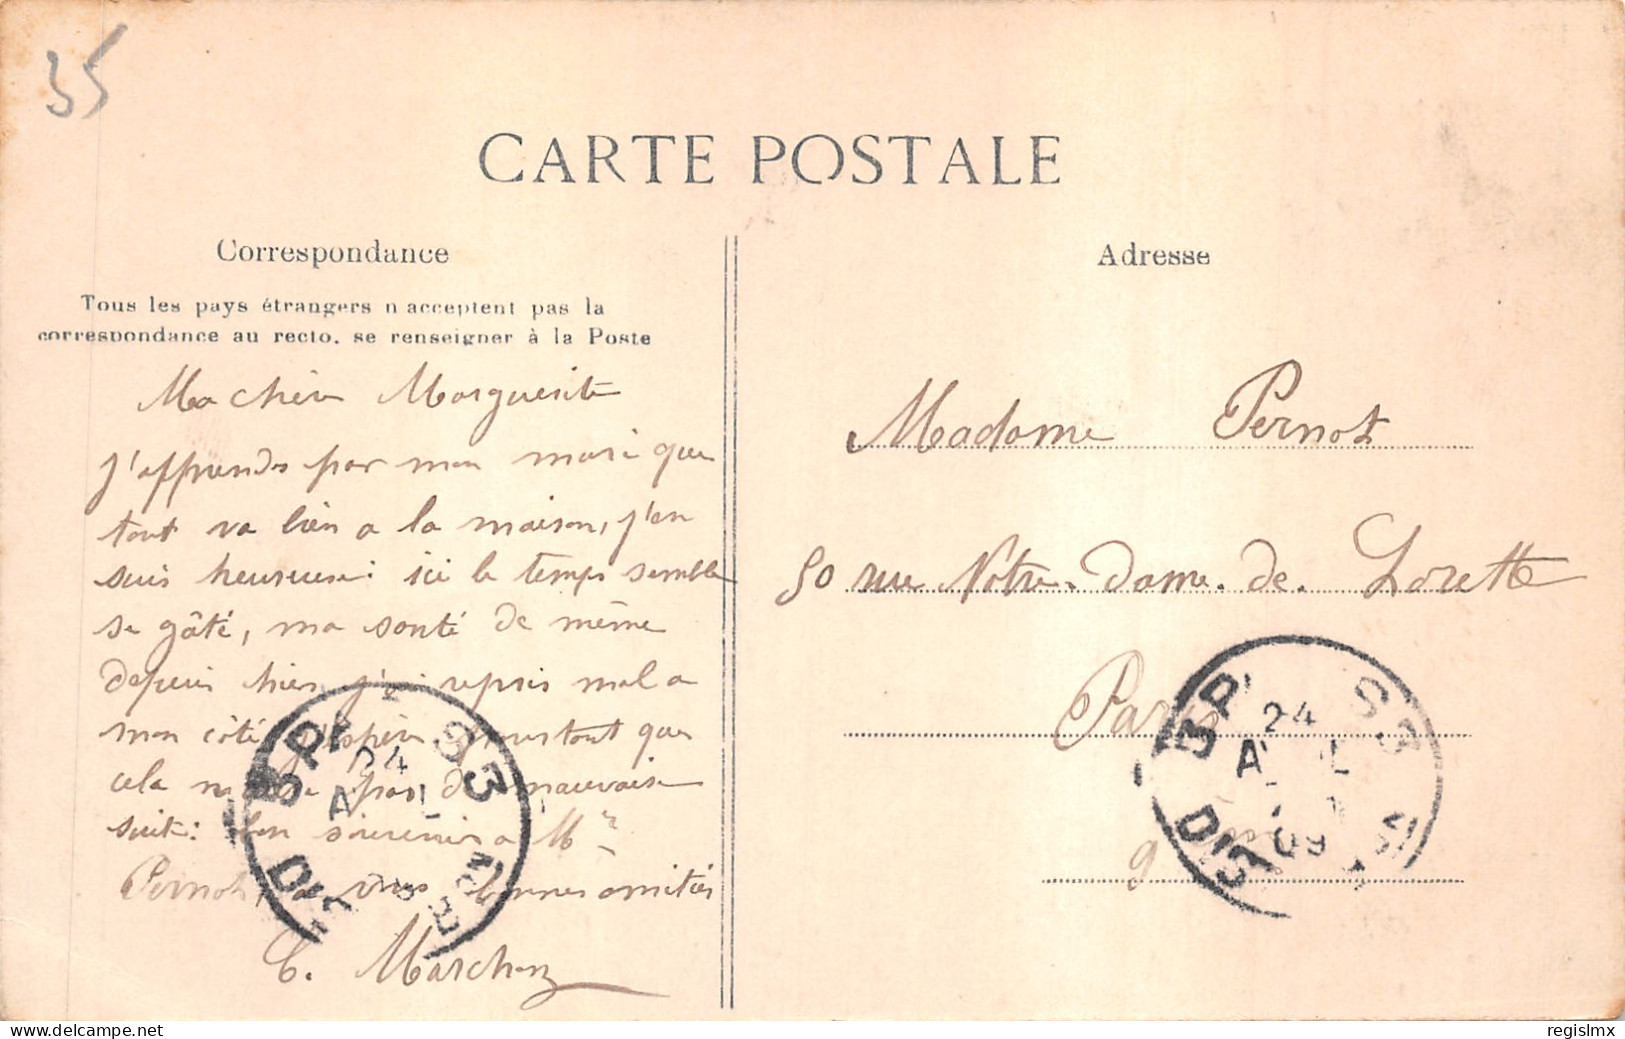 35
CARTE POSTALE
Correspondance
Tous les pays étrangers n'acceptent pas la
correspondance au recto, se renseigner à la Poste
Ma chère Marguerite
j'apprends par mon mari que
tout va bien a la maison, j'en
suis heureuse: ici le temps semble
se gâté, ma santé de même
depuis hier j'ai repris mal a
mon côté j'espère pourtant que
cela n'aura pas de mauvaise
suite: bon souvenir a Mr
Pernot, a vous bonnes amitiés
C. Marchon
Adresse
Madame Pernot
50 rue Notre-dame-de-Lorette
Paris
9
24
09
24
DIS
regislmx
delcampe.net